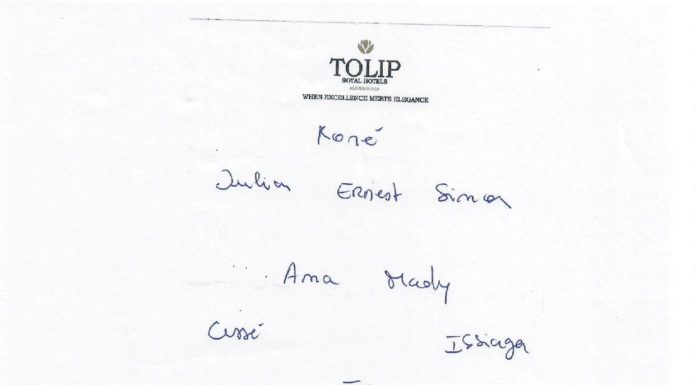 TOLIP
ROYAL HOTELS
ALEXANDRIA
WHEN EXCELLENCE MEETS ELEGANCE
Koné
Julian Ernest Simon
Ana Mady
Cissé Issiaga